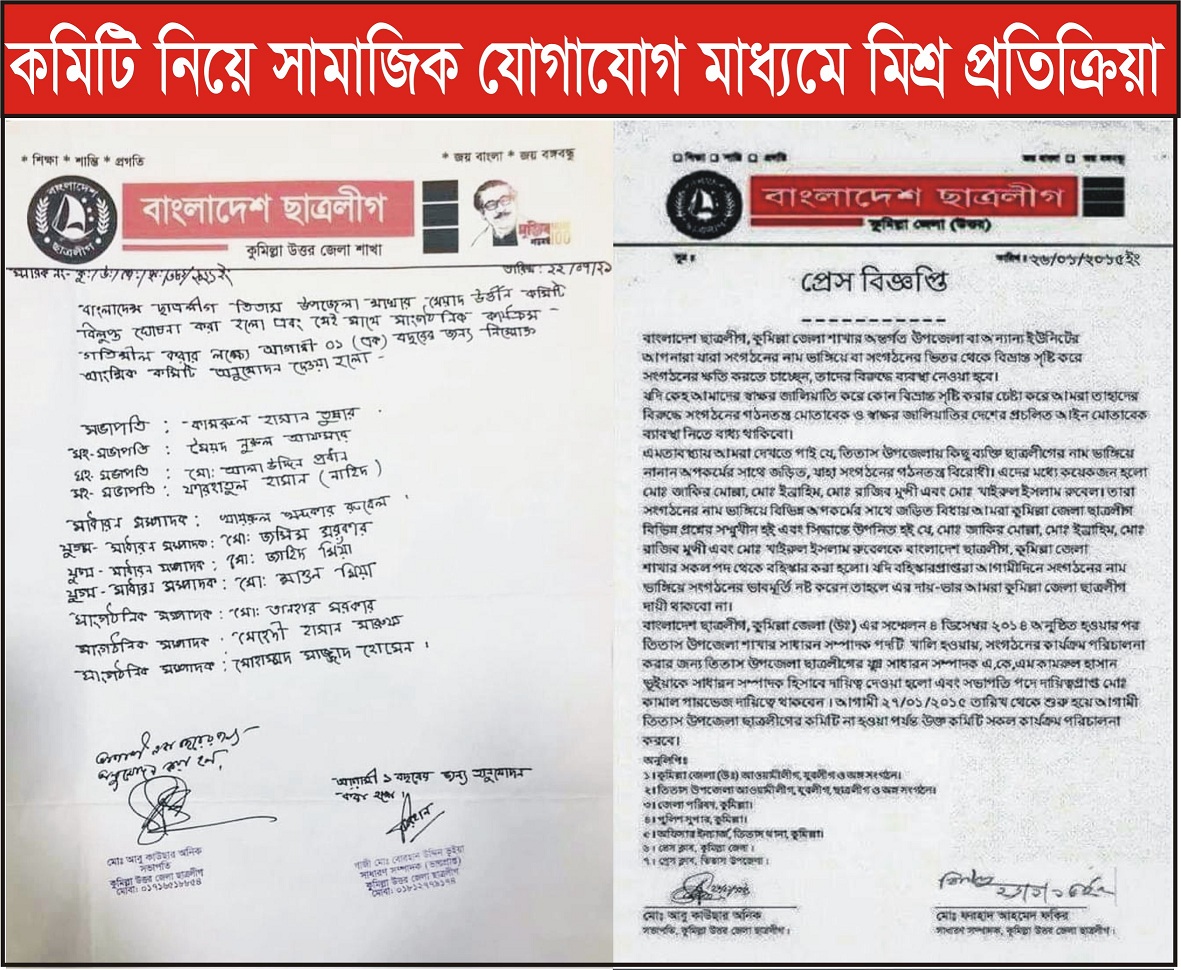 কমিটি নিয়ে সামাজিক যোগাযোগ মাধ্যমে মিশ্র প্রতিক্রিয়া
* শিক্ষা * শান্তি * প্রগতি
* জয় বাংলা * জয় বঙ্গবন্ধু
বাংলাদেশ
ছাত্রলীগ
বাংলাদেশ ছাত্রলীগ
কুমিল্লা উত্তর জেলা শাখা
মুজিব
100
স্মারক নং-
তারিখ : ২২/০৭/২১
বাংলাদেশ ছাত্রলীগ তিতাস উপজেলা শাখার মেয়াদ উর্ত্তীন কমিটি
বিলুপ্ত ঘোষনা করা হলো এবং সেই সাথে সাংগঠনিক কার্যক্রম -
গতিশীল করার লক্ষ্যে আগামী ০১ (এক) বছরের জন্য নিম্নোক্ত
আংশিক কমিটি অনুমোদন দেওয়া হলো -
সভাপতি : কামরুল হাসান তুষার
সহ-সভাপতি : সৈয়দ নুরুল আফসার
সহ- সভাপতি : মো: আলা উদ্দিন প্রধান
সহ- সভাপতি : ফারহাতুল হাসান (নাহিদ)
সাধারন সম্পাদক : খায়রুল খন্দকার রুবেল
যুগ্ম- সাধারন সম্পাদক : মো: জসিম সরকার
যুগ্ম- সাধারন সম্পাদক : মো: জাহিদ মিয়া
যুগ্ম- সাধারন সম্পাদক : মো: মিয়া
সাংগঠনিক সম্পাদক : মো: তানহার সরকার
সাংগঠনিক সম্পাদক : মেহেদী হাসান মারুফ
সাংগঠনিক সম্পাদক : মোহাম্মদ সাজ্জাদ হোসেন ।
আগামী এক বছরের জন্য
অনুমোদন করা হল,
আগামী ১ বছরের জন্য অনুমোদন
করা হলো ।
মোঃ আবু কাউছার অনিক
সভাপতি
কুমিল্লা উত্তর জেলা ছাত্রলীগ
গাজী মোঃ বোরহান উদ্দিন ভূইয়া
সাধারণ সম্পাদক (ভারপ্রাপ্ত)
কুমিল্লা উত্তর জেলা ছাত্রলীগ
শিক্ষা শান্তি প্রগতি
জয় বাংলা জয় বঙ্গবন্ধু
বাংলাদেশ ছাত্রলীগ
কুমিল্লা জেলা (উত্তর)
সূত্র ঃ
তারিখ ঃ ২৬/০১/২০১৫ইং
প্রেস বিজ্ঞপ্তি
বাংলাদেশ ছাত্রলীগ, কুমিল্লা জেলা শাখার অন্তর্গত উপজেলা বা অন্যান্য ইউনিটের
আপনারা যারা সংগঠনের নাম ভাঙ্গিয়ে বা সংগঠনের ভিতর থেকে বিভ্রান্ত সৃষ্টি করে
সংগঠনের ক্ষতি করতে চাচ্ছেন, তাদের বিরুদ্ধে ব্যবস্থা নেওয়া হবে।
যদি কেহ আমাদের স্বাক্ষর জালিয়াতি করে কোন বিভ্রান্ত সৃষ্টি করার চেষ্টা করে আমরা তাহাদের
বিরুদ্ধে সংগঠনের গঠনতন্ত্র মোতাবেক ও স্বাক্ষর জালিয়াতির দেশের প্রচলিত আইন মোতাবেক
ব্যাবস্থা নিতে বাধ্য থাকিবো।
এমতাবস্থায় আমরা দেখতে পাই যে, তিতাস উপজেলায় কিছু ব্যক্তি ছাত্রলীগের নাম ভাঙ্গিয়ে
নানান অপকর্মের সাথে জড়িত, যাহা সংগঠনের গঠনতন্ত্র বিরোধী। এদের মধ্যে কয়েকজন হলো
মোঃ জাকির মোল্লা, মোঃ ইব্রাহিম, মোঃ রাজিব মুন্সী এবং মোঃ খাইরুল ইসলাম রুবেল। তারা
সংগঠনের নাম ভাঙ্গিয়ে বিভিন্ন অপকর্মের সাথে জড়িত বিধায় আমরা কুমিল্লা জেলা ছাত্রলীগ
বিভিন্ন প্রশ্নের সম্মুখীন হই এবং সিদ্ধান্তে উপনিত হই যে, মোঃ জাকির মোল্লা, মোঃ ইব্রাহিম, মোঃ
রাজিব মুন্সী এবং মোঃ খাইরুল ইসলাম রুবেলকে বাংলাদেশ ছাত্রলীগ, কুমিল্লা জেলা
শাখার সকল পদ থেকে বহিষ্কার করা হলো। যদি বহিষ্কারপ্রাপ্তরা আগামীদিনে সংগঠনের নাম
ভাঙ্গিয়ে সংগঠনের ভাবমূর্তি নষ্ট করেন তাহলে এর দায়-ভার আমরা কুমিল্লা জেলা ছাত্রলীগ
দায়ী থাকবো না।
বাংলাদেশ ছাত্রলীগ, কুমিল্লা জেলা (উঃ) এর সম্মেলন ৪ ডিসেম্বর ২০১৪ অনুষ্ঠিত হওয়ার পর
তিতাস উপজেলা শাখার সাধারন সম্পাদক পদটি খালি হওয়ায়, সংগঠনের কার্যক্রম পরিচালনা
করার জন্য তিতাস উপজেলা ছাত্রলীগের যুগ্ম সাধারন সম্পাদক এ,কে,এম কামরুল হাসান
ভূইয়াকে সাধারন সম্পাদক হিসাবে দায়িত্ব দেওয়া হলো এবং সভাপতি পদে দায়িত্বপ্রাপ্ত মোঃ
কামাল পারভেজ দায়িত্বে থাকবেন । আগামী ২৭/০১/২০১৫ তারিখ থেকে শুরু হয়ে আগামী
তিতাস উপজেলা ছাত্রলীগের কমিটি না হওয়া পর্যন্ত উক্ত কমিটি সকল কার্যক্রম পরিচালনা
করবে।
অনুলিপিঃ
১। কুমিল্লা জেলা (উঃ) আওয়ামীলীগ, যুবলীগ ও অঙ্গ সংগঠন।
২। তিতাস উপজেলা আওয়ামীলীগ, যুবলীগ, ছাত্রলীগ ও অঙ্গ সংগঠন।
৩। জেলা পরিষদ, কুমিল্লা।
৪। পুলিশ সুপার, কুমিল্লা।
৫। অফিসার ইনচার্জ, তিতাস থানা, কুমিল্লা।
৬। প্রেস ক্লাব, কুমিল্লা জেলা ।
৭। প্রেস ক্লাব, তিতাস উপজেলা ।
মোঃ আবু কাউছার অনিক
সভাপতি, কুমিল্লা উত্তর জেলা ছাত্রলীগ ।
মোঃ ফরহাদ আহমেদ ফকির
সাধারণ সম্পাদক, কুমিল্লা উত্তর জেলা ছাত্রলীগ ।